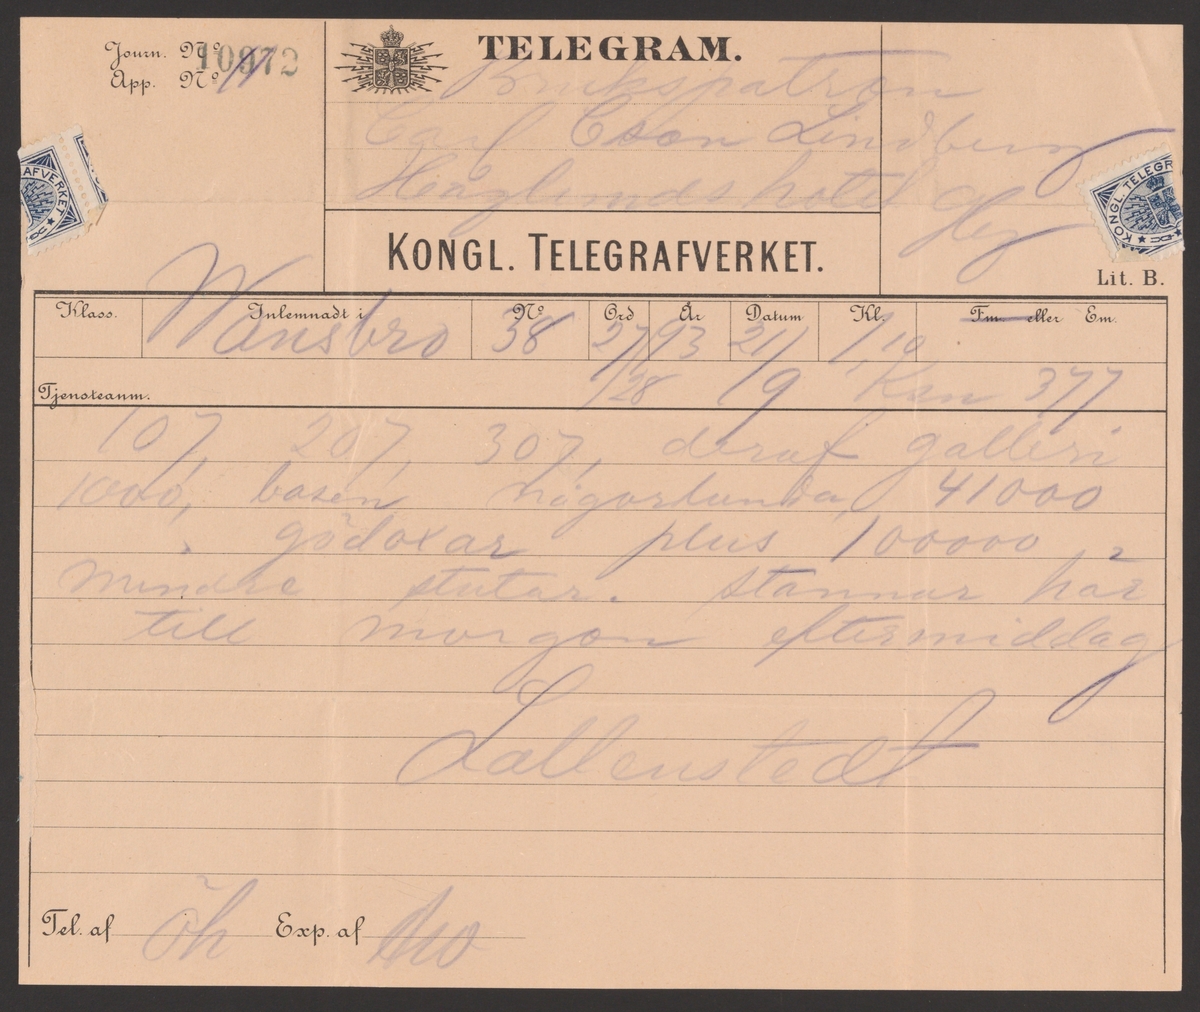 Journ. No 10972
App. No
TELEGRAM.
Brukspatron
Carl Cson Lindberg
Höglunds hotel
KONGL. TELEGRAFVERKET.
AFVERKET
KONGL. TELEGR
Lit. B.
Klass. Inlemnadt i No Ord År Datum Kl. Fm. eller Em.
Wansbro 38 27/ 93 21/ 1/10
Tjensteanm. /28 /9 Ksn 377
107, 207, 307, deraf galleri
1000, basen högorlunda, 41000
gödoxar plus 100000
mindre stutar. stannar här
till morgon eftermiddag
Lallenstedt
Tel. af öh Exp. af